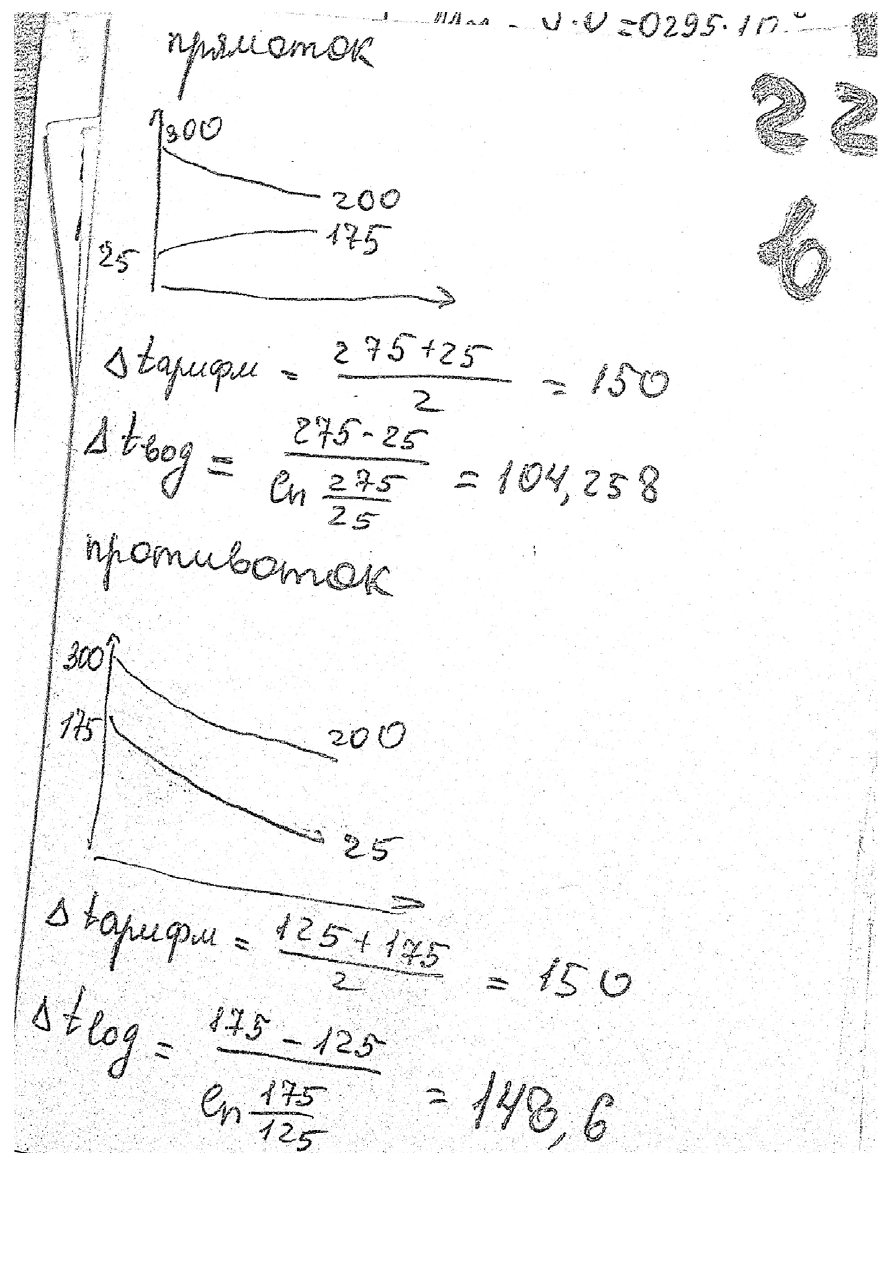 - V·V=0295·10
прямоток
22
6
300
200
175
25
Δtарифм = (275+25)/2 = 150
Δtвод = (275-25)/(ln 275/25) = 104,258
противоток
300
175
200
25
Δtарифм = (125+175)/2 = 150
Δtlog = (175-125)/(ln 175/125) = 148,6